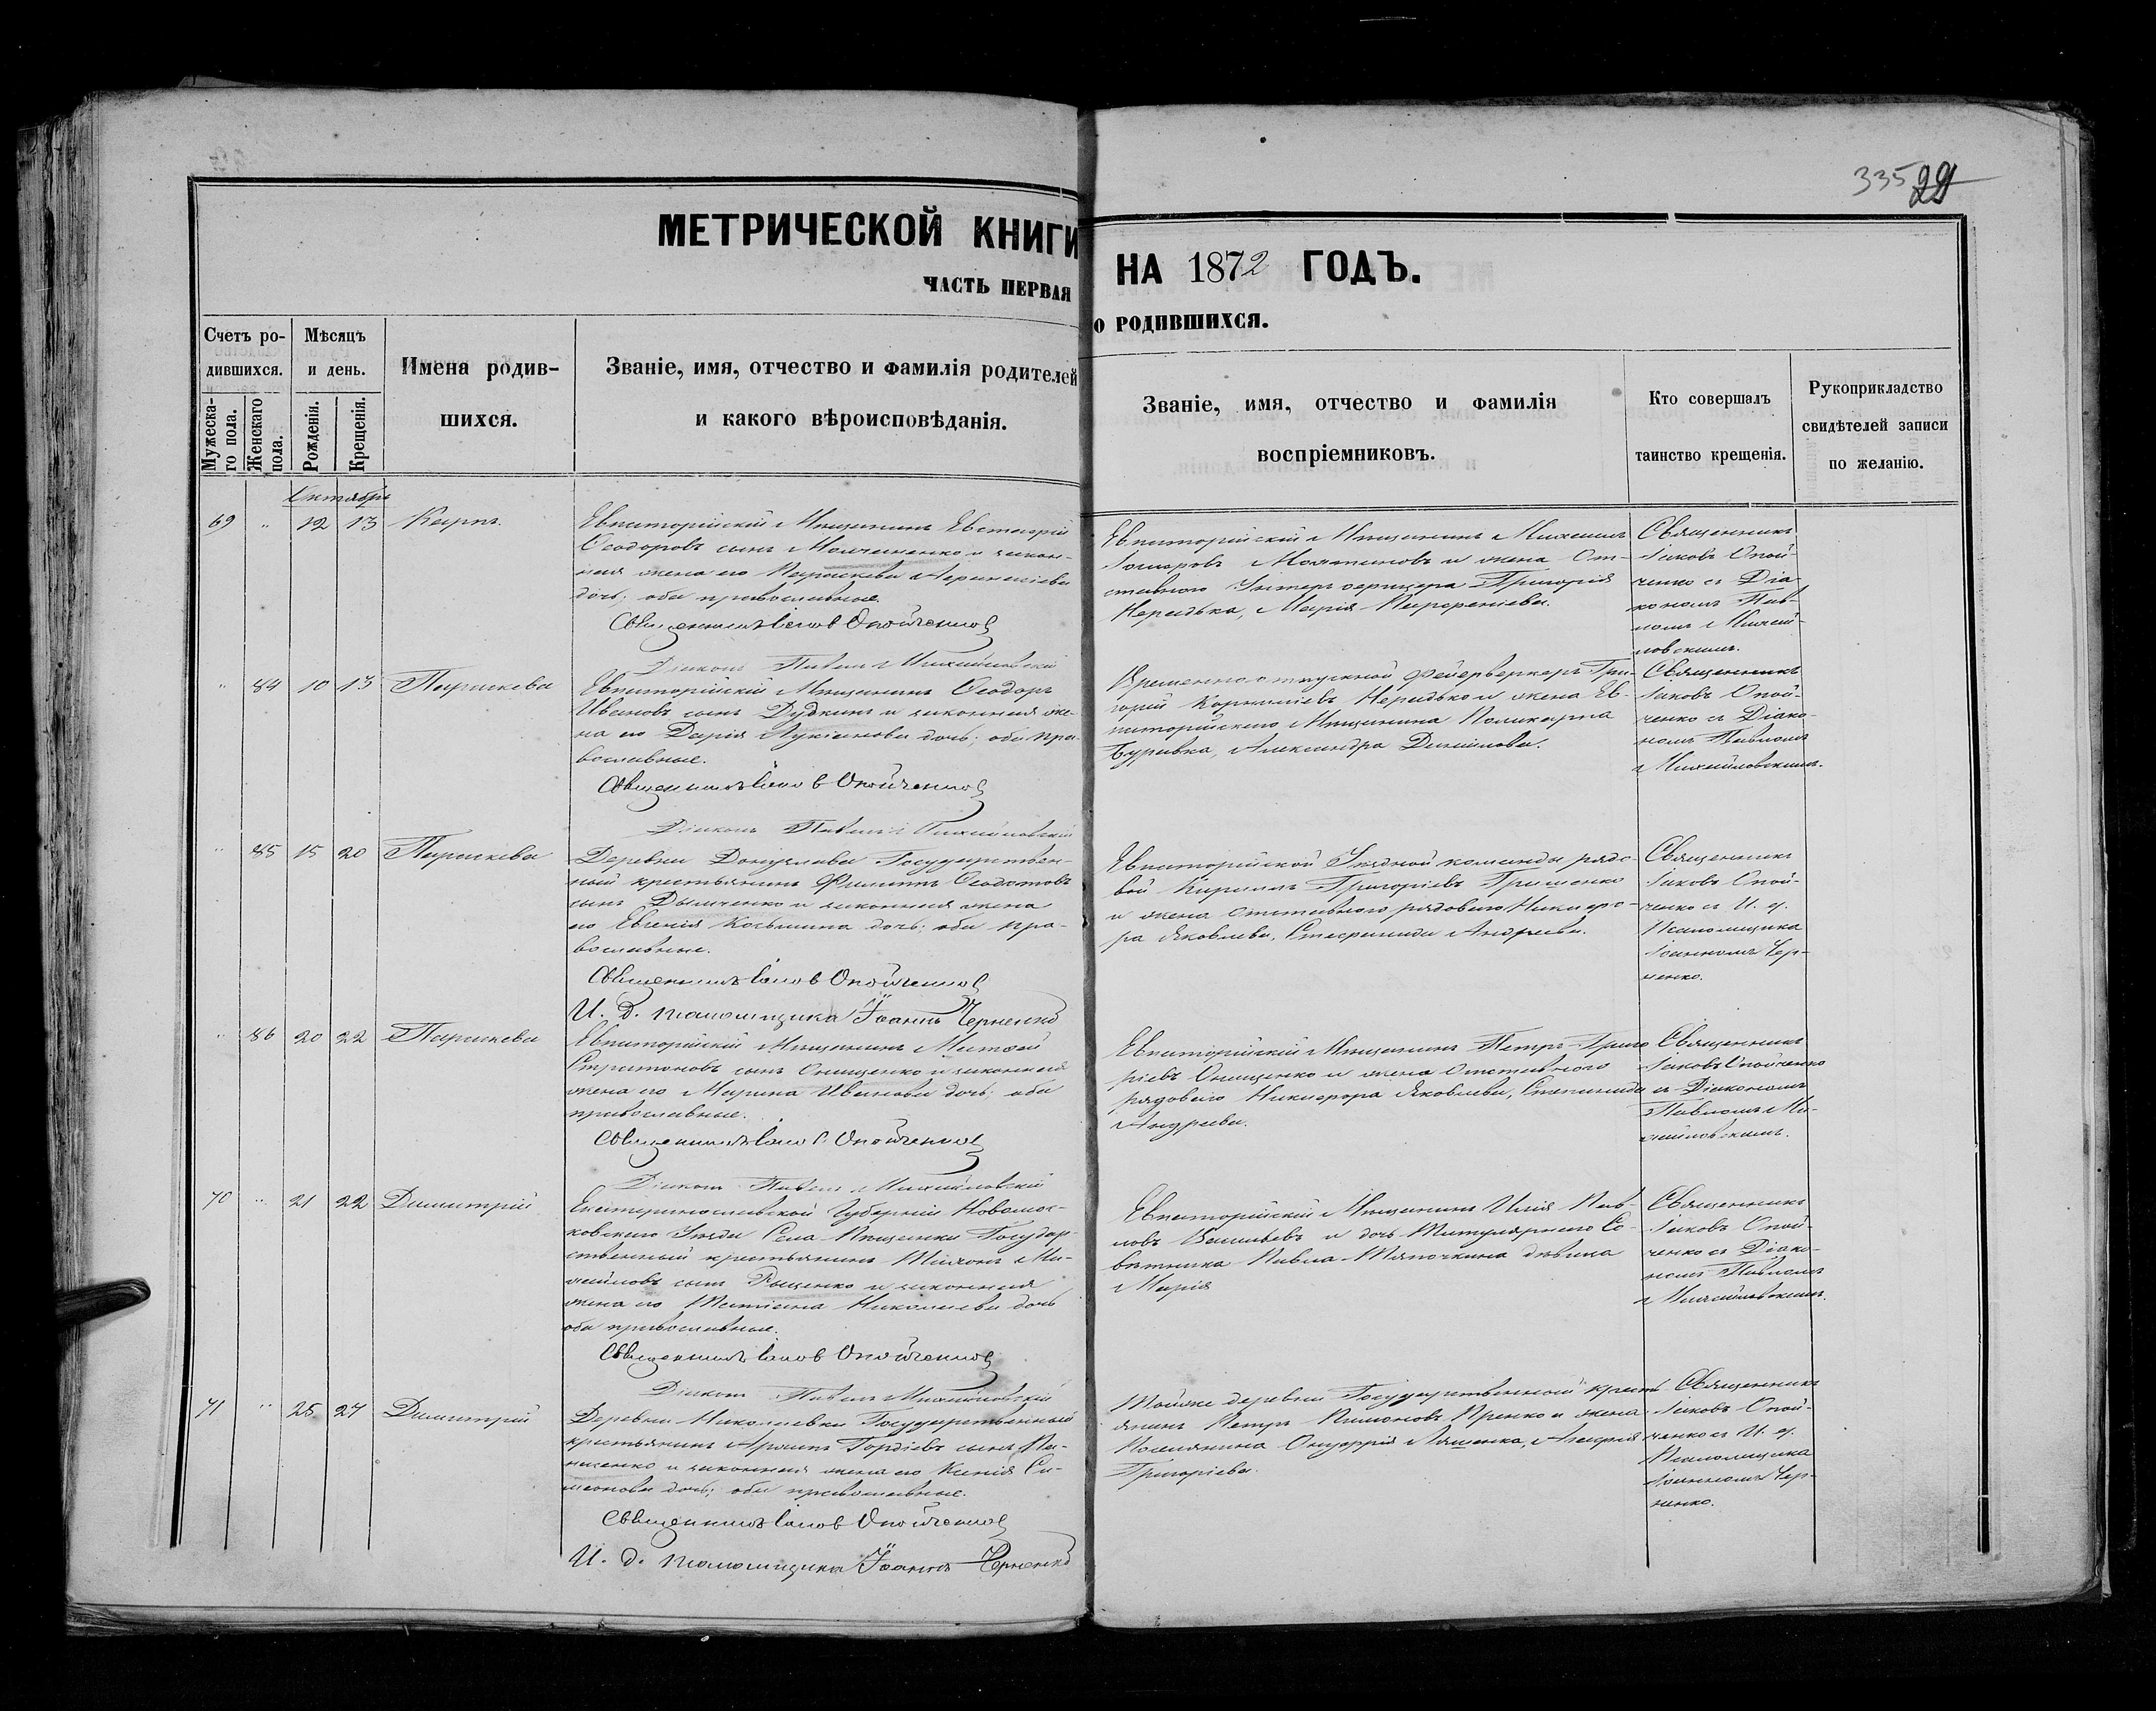 335 29
МЕТРИЧЕСКОЙ КНИГИ НА 1872 ГОДЪ.
ЧАСТЬ ПЕРВАЯ О РОДИВШИХСЯ.
Счетъ ро-
дившихся.
Мужеска-
го пола.
Женскаго
пола.
Мѣсяцъ
и день.
Рожденія.
Крещенія.
Имена родив-
шихся.
Званіе, имя, отчество и фамилія родителей
и какого вѣроисповѣданія.
Званіе, имя, отчество и фамилія
воспріемниковъ.
Кто совершалъ
таинство крещенія.
Рукоприкладство
свидѣтелей записи
по желанію.
Октябрь
69 " 12 13 Карпъ.
Евпаторійскій Мѣщанинъ Евстафій
Ѳеодоровъ сынъ и закон-
ная жена его Параскева
дочь; оба православные.
Священникъ Іаковъ Опойченко
Діаконъ Павелъ Михайловскій
Евпаторійскій Мѣщанинъ Михаилъ
и жена От-
ставного Унтеръ офицера Григорія
Нерядька, Марія Парфеніева.
Священникъ
Іаковъ Опой-
ченко съ Діа-
кономъ Пав-
ломъ Михай-
ловскимъ.
" 84 10 13 Параскева
Евпаторійскій Мѣщанинъ Ѳеодоръ
Ивановъ сынъ Дудкинъ и законная же-
на его Дарія Лукіанова дочь; оба пра-
вославные.
Священникъ Іаковъ Опойченко
Діаконъ Павелъ Михайловскій
Временно отпускной Фейерверкеръ Гри-
горій Корниліевъ Нерядько и жена Ев-
паторійскаго Мѣщанина Поликарпа
Буравка, Александра Данилова.
Священникъ
Іаковъ Опой-
ченко съ Діако-
номъ Павломъ
Михайловскимъ.
" 85 15 20 Параскева
Деревни Донузлава Государствен-
ный крестьянинъ Филиппъ Ѳеодотовъ
сынъ Дымченко и законная жена
его Евгенія Косьмина дочь; оба пра-
вославные.
Священникъ Іаковъ Опойченко
И. д. псаломщика Іоаннъ Черненко
Евпаторійской Уѣздной команды рядо-
вой Кириллъ Григоріевъ Гриценко
и жена отставного рядового Никифо-
ра Яковлева, Стефанида Андреева.
Священникъ
Іаковъ Опой-
ченко съ И. д.
Псаломщика
Іоанномъ Чер-
ненко.
" 86 20 22 Параскева
Евпаторійскій Мѣщанинъ Матѳей
Стратоновъ сынъ Онищенко и законная
жена его Марина Иванова дочь; оба
православные.
Священникъ Іаковъ Опойченко
Діаконъ Павелъ Михайловскій
Евпаторійскій Мѣщанинъ Петръ Григо-
ріевъ Онищенко и жена Отставного
рядового Никифора Яковлева, Стефанида
Андреева.
Священникъ
Іаковъ Опойченко
съ Діакономъ
Павломъ Ми-
хайловскимъ.
70 " 21 22 Димитрій
Екатеринославской Губерніи Новомос-
ковскаго Уѣзда Села Государ-
ственный крестьянинъ Тихонъ Ми-
хайловъ сынъ и законная
жена его Татіана Николаева дочь
оба православные.
Священникъ Іаковъ Опойченко
Діаконъ Павелъ Михайловскій
Евпаторійскій Мѣщанинъ Илія Пав-
ловъ Васильевъ и дочь Титулярнаго Со-
вѣтника Павла Тяпочкина дѣвица
Марія
Священникъ
Іаковъ Опой-
ченко съ Діако-
номъ Павломъ
Михайловскимъ.
71 " 25 27 Димитрій
Деревни Николаевки Государственный
крестьянинъ Гордіевъ сынъ
и законная жена его Ксенія Си-
меонова дочь; оба православные.
Священникъ Іаковъ Опойченко
И. д. псаломщика Іоаннъ Черненко
Той же деревни Государственный кресть-
янинъ Петръ и жена
Поселянина Онуфрія Ляшенка,
Григоріева.
Священникъ
Іаковъ Опой-
ченко съ И. д.
Псаломщика
Іоанномъ Чер-
ненко.